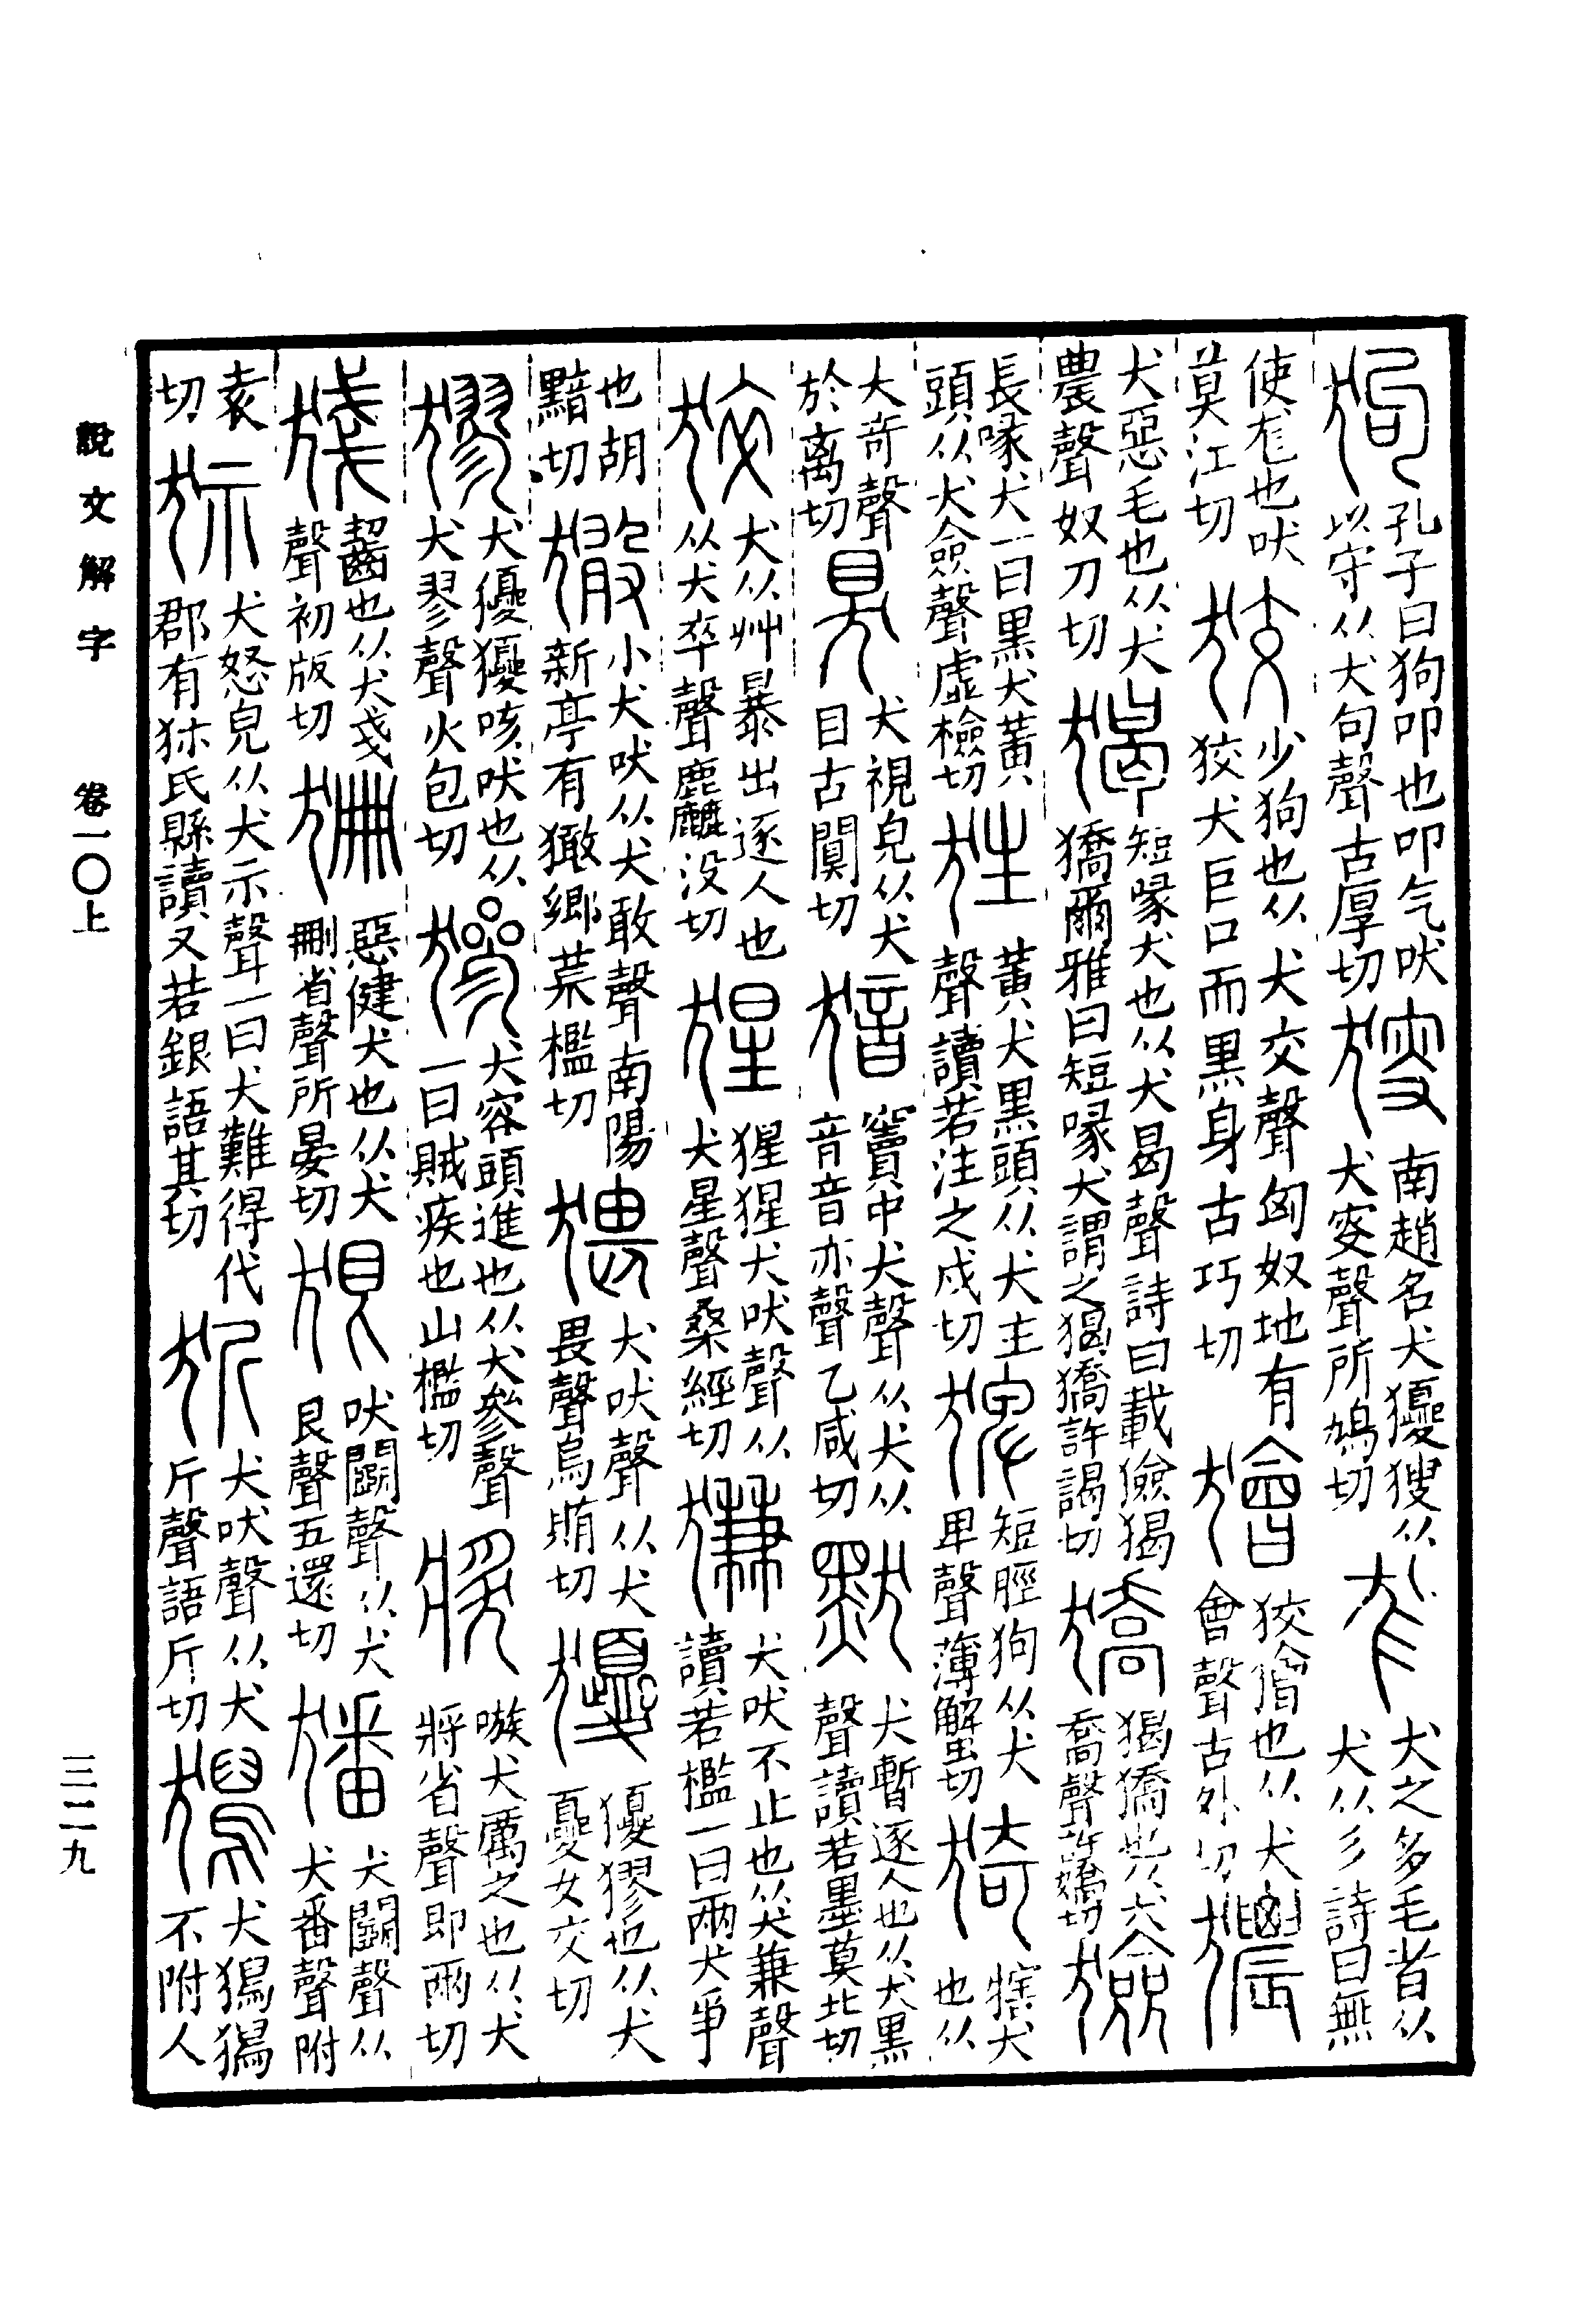 狗孔子曰狗叩也叩气吠以守从犬句聲古厚切獀南趙名犬獿獀从犬叜聲所鳩切尨犬之多毛者从犬从彡詩曰無
使尨也吠莫江切狡少狗也从犬交聲匈奴地有狡犬巨口而黑身古巧切獪狡獪也从犬會聲古外切㺜
犬惡毛也从犬農聲奴刀切猲短喙犬也从犬曷聲詩曰載獫猲獢爾雅曰短喙犬謂之猲獢許謁切獢猲獢也从犬喬聲許嬌切獫
長喙犬一曰黑犬黃頭从犬僉聲虛檢切㹥黃犬黑頭从犬主聲讀若注之戍切猈短脛狗从犬卑聲薄蟹切猗犗犬也从
犬奇聲於离切狊犬視皃从犬目古闃切猎竇中犬聲从犬从音音亦聲乙咸切默犬暫逐人也从犬黑聲讀若墨莫北切
猝犬从艸暴出逐人也从犬卒聲麤没切猩猩猩犬吠聲从犬星聲桑經切㺌犬吠不止也从犬兼聲讀若檻一曰兩犬爭
也胡黯切㺖小犬吠从犬敢聲南陽新亭有㺖鄉荒檻切猥犬吠聲从犬畏聲烏賄切獿獿㺒也从犬夒聲女交切
㺒犬獿獿咳吠也从犬翏聲火包切㺑犬容頭進也从犬參聲一曰賊疾也山檻切㢡嗾犬厲之也从犬將省聲即兩切
㹽齧也从犬戔聲初版切狦惡健犬也从犬刪省聲所晏切狠吠鬭聲从犬艮聲五還切㺕犬鬭聲从犬番聲附
袁切狋犬怒皃从犬示聲一曰犬難得代郡有狋氏縣讀又若銀語其切㹞犬吠聲从犬斤聲語斤切獡犬獡獡不附人
說文解字 卷一〇上
三二九